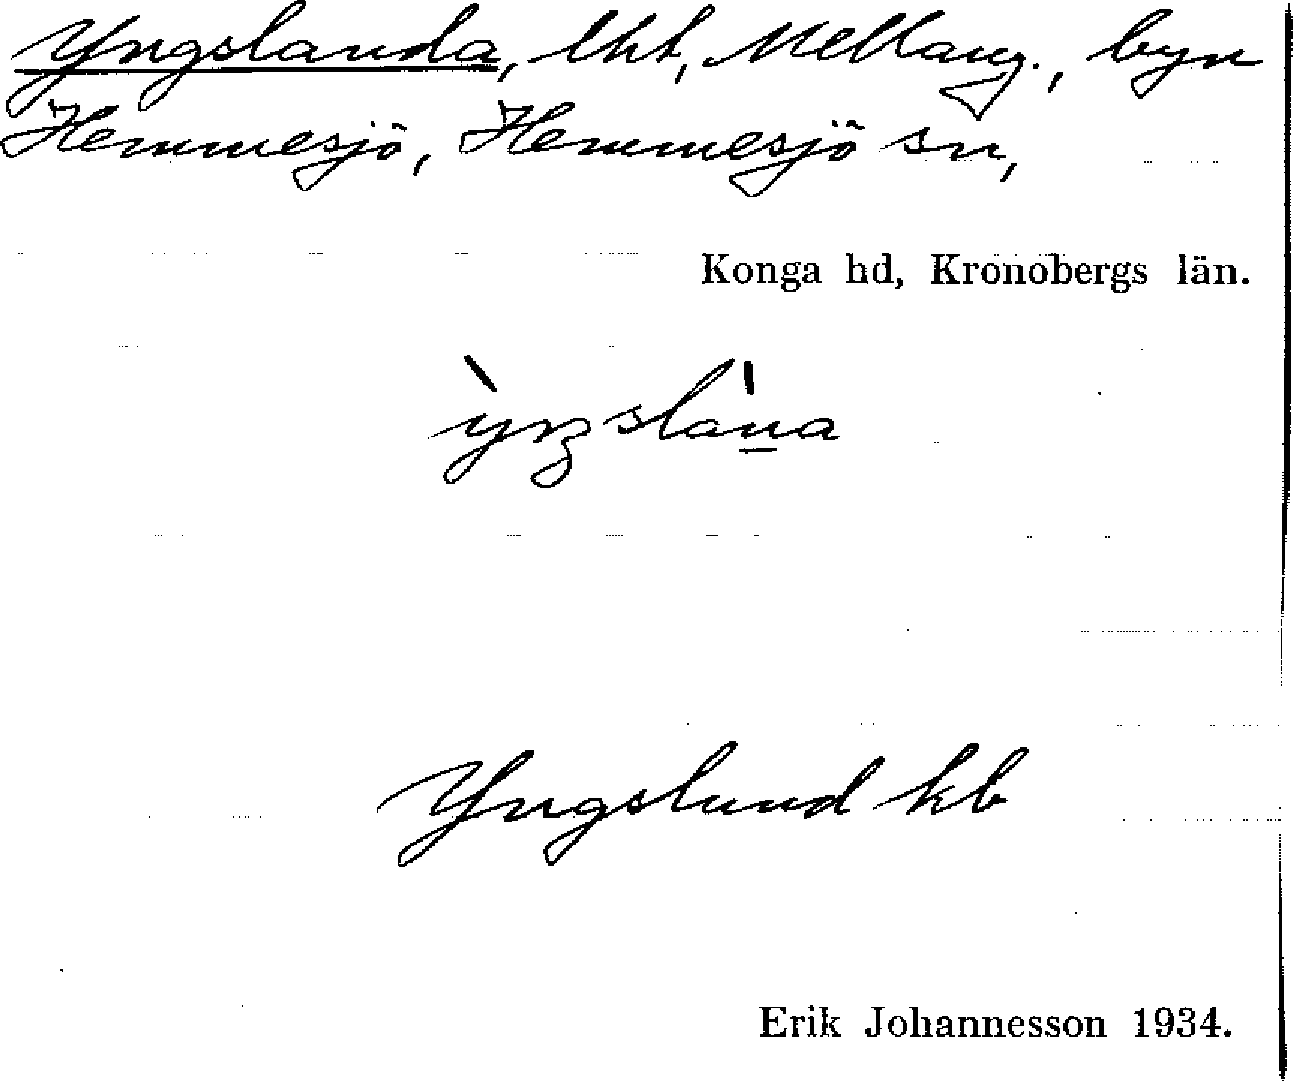 Yngslanda, lht, Mellang., byn
Hemmesjö, Hemmesjö sn,
Konga hd, Kronobergs län.
ỳ̖ŋslána
Yngslund kb
Erik Johannesson 1934.